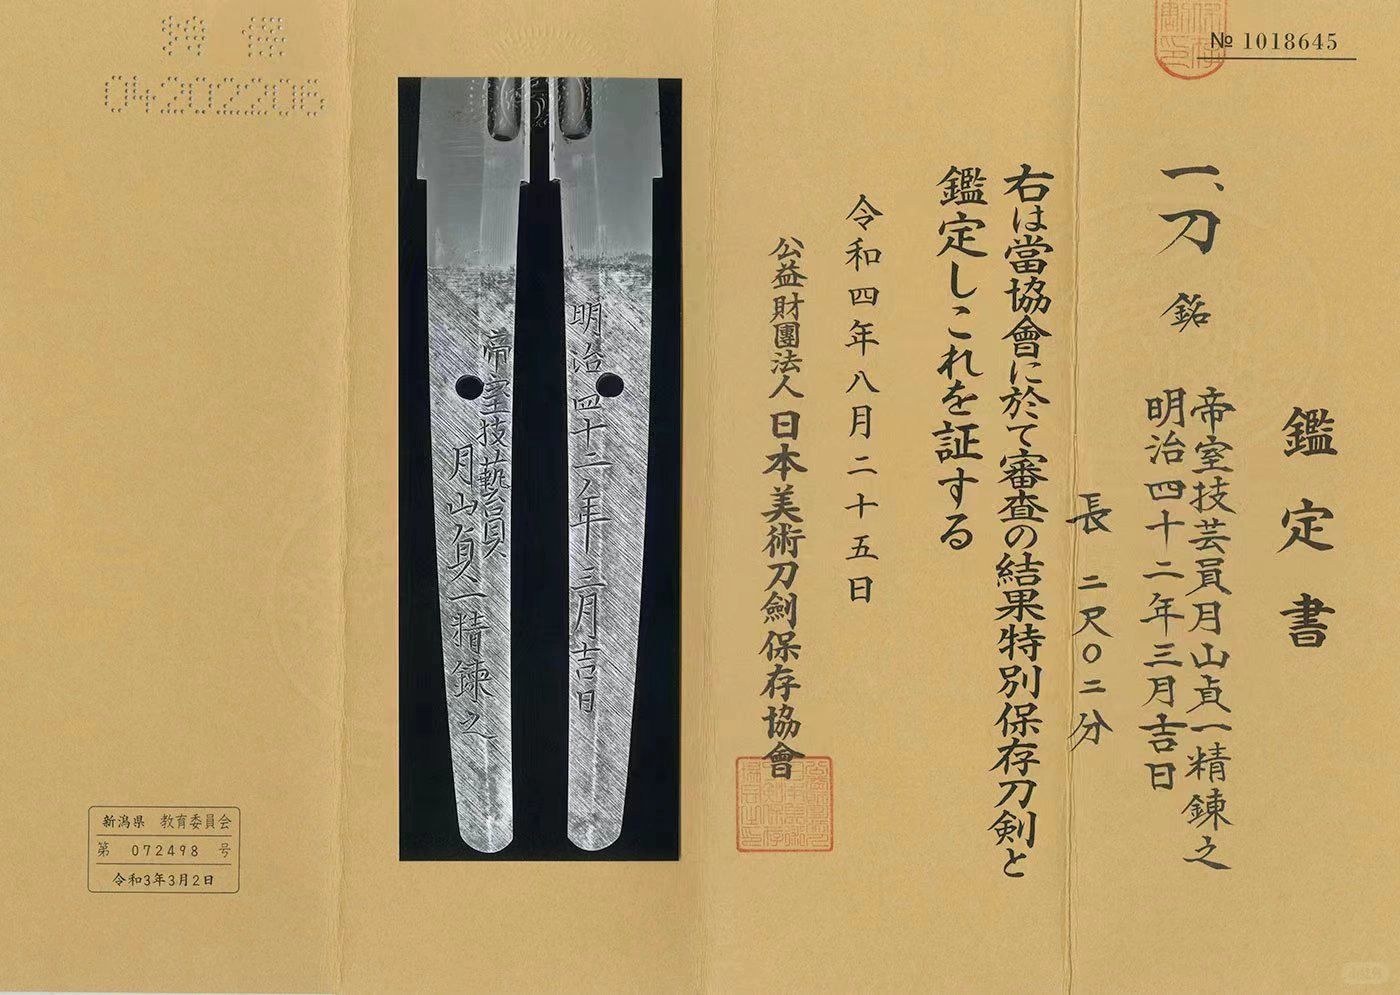 № 1018645
鑑定書
一、刀 銘 帝室技芸員月山貞一精錬之
明治四十二年三月吉日
長 二尺〇二分
右は當協會に於て審査の結果特別保存刀剣と
鑑定しこれを証する
令和四年八月二十五日
公益財團法人 日本美術刀劍保存協會
明治四十二年三月吉日
帝室技藝員
月山貞一精錬之
特保
04202206
新潟県 教育委員会
第 072498 号
令和3年3月2日